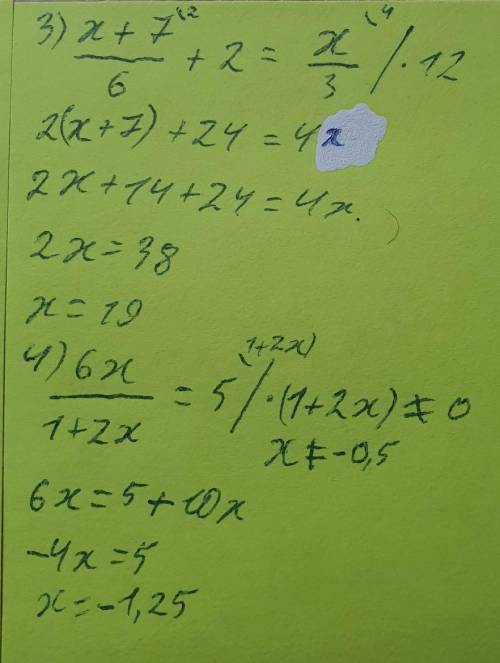 3) (x + 7)/6 \2 + 2 = x/3 \4 / · 12
2(x+7) + 24 = 4x
2x + 14 + 24 = 4x.
2x = 38
x = 19
4) 6x/(1+2x) = 5 \1+2x) / · (1+2x) ≠ 0
x ≠ -0,5
6x = 5 + 10x
-4x = 5
x = -1,25